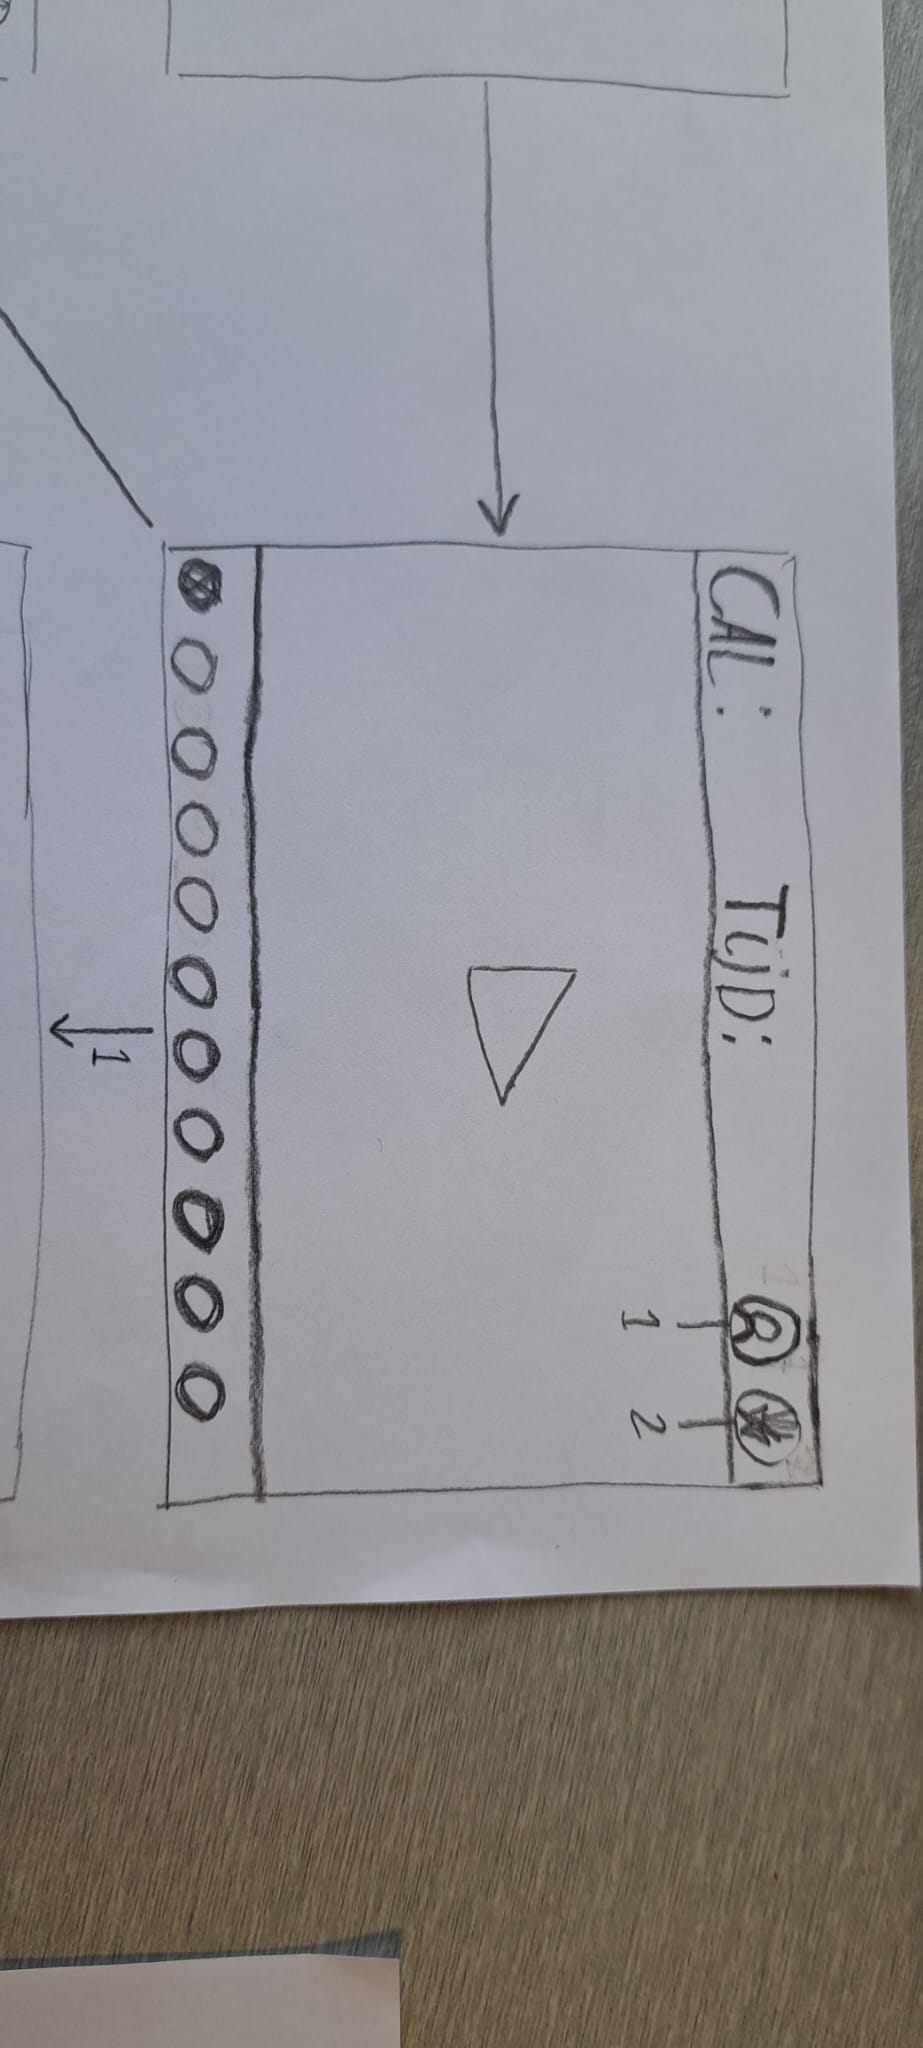 CAL: TIJD:
1 2
1